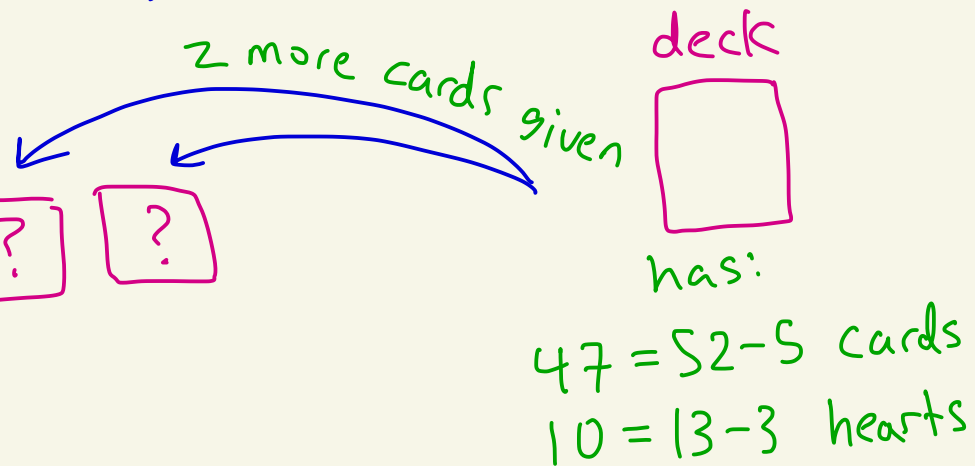 2 more cards given
deck
? ?
has:
47 = 52-5 cards
10 = 13-3 hearts